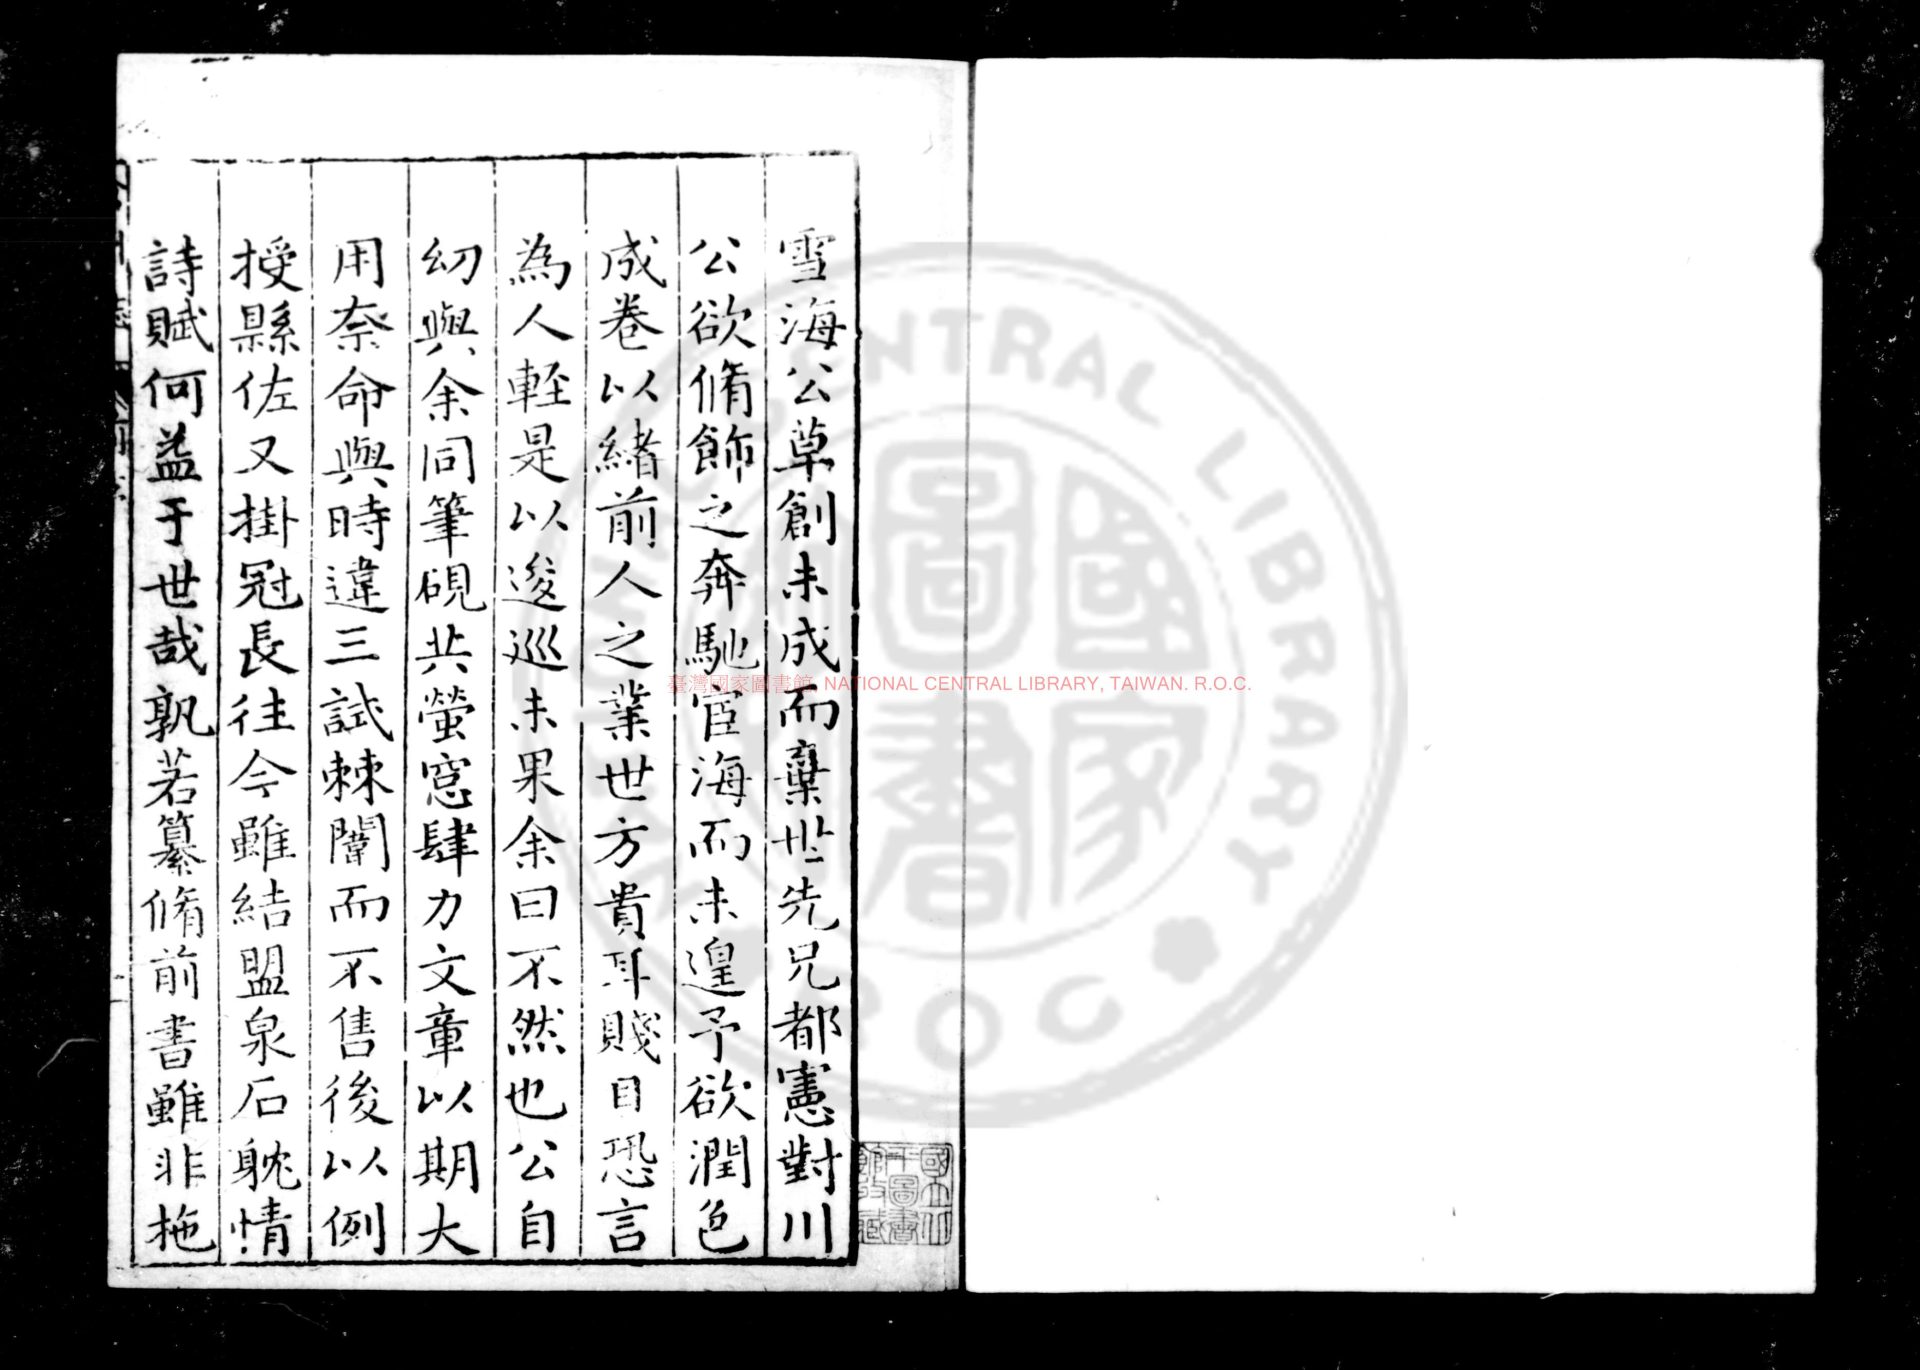 雪海公草創未成而棄世先兄都憲對川
公欲脩飾之奔馳宦海而未遑予欲潤色
成卷以緒前人之業世方貴耳賤目恐言
為人輕是以逡巡未果余曰不然也公自
幼與余同筆硯共螢窓肆力文章以期大
用奈命與時違三試棘闈而不售後以例
授縣佐又掛冠長往今雖結盟泉石躭情
詩賦何益于世哉孰若纂脩前書雖非拖
國立北
平圖書
館收藏
臺灣國家圖書館, NATIONAL CENTRAL LIBRARY, TAIWAN. R.O.C.
國家圖書
NATIONAL CENTRAL LIBRARY
ROC